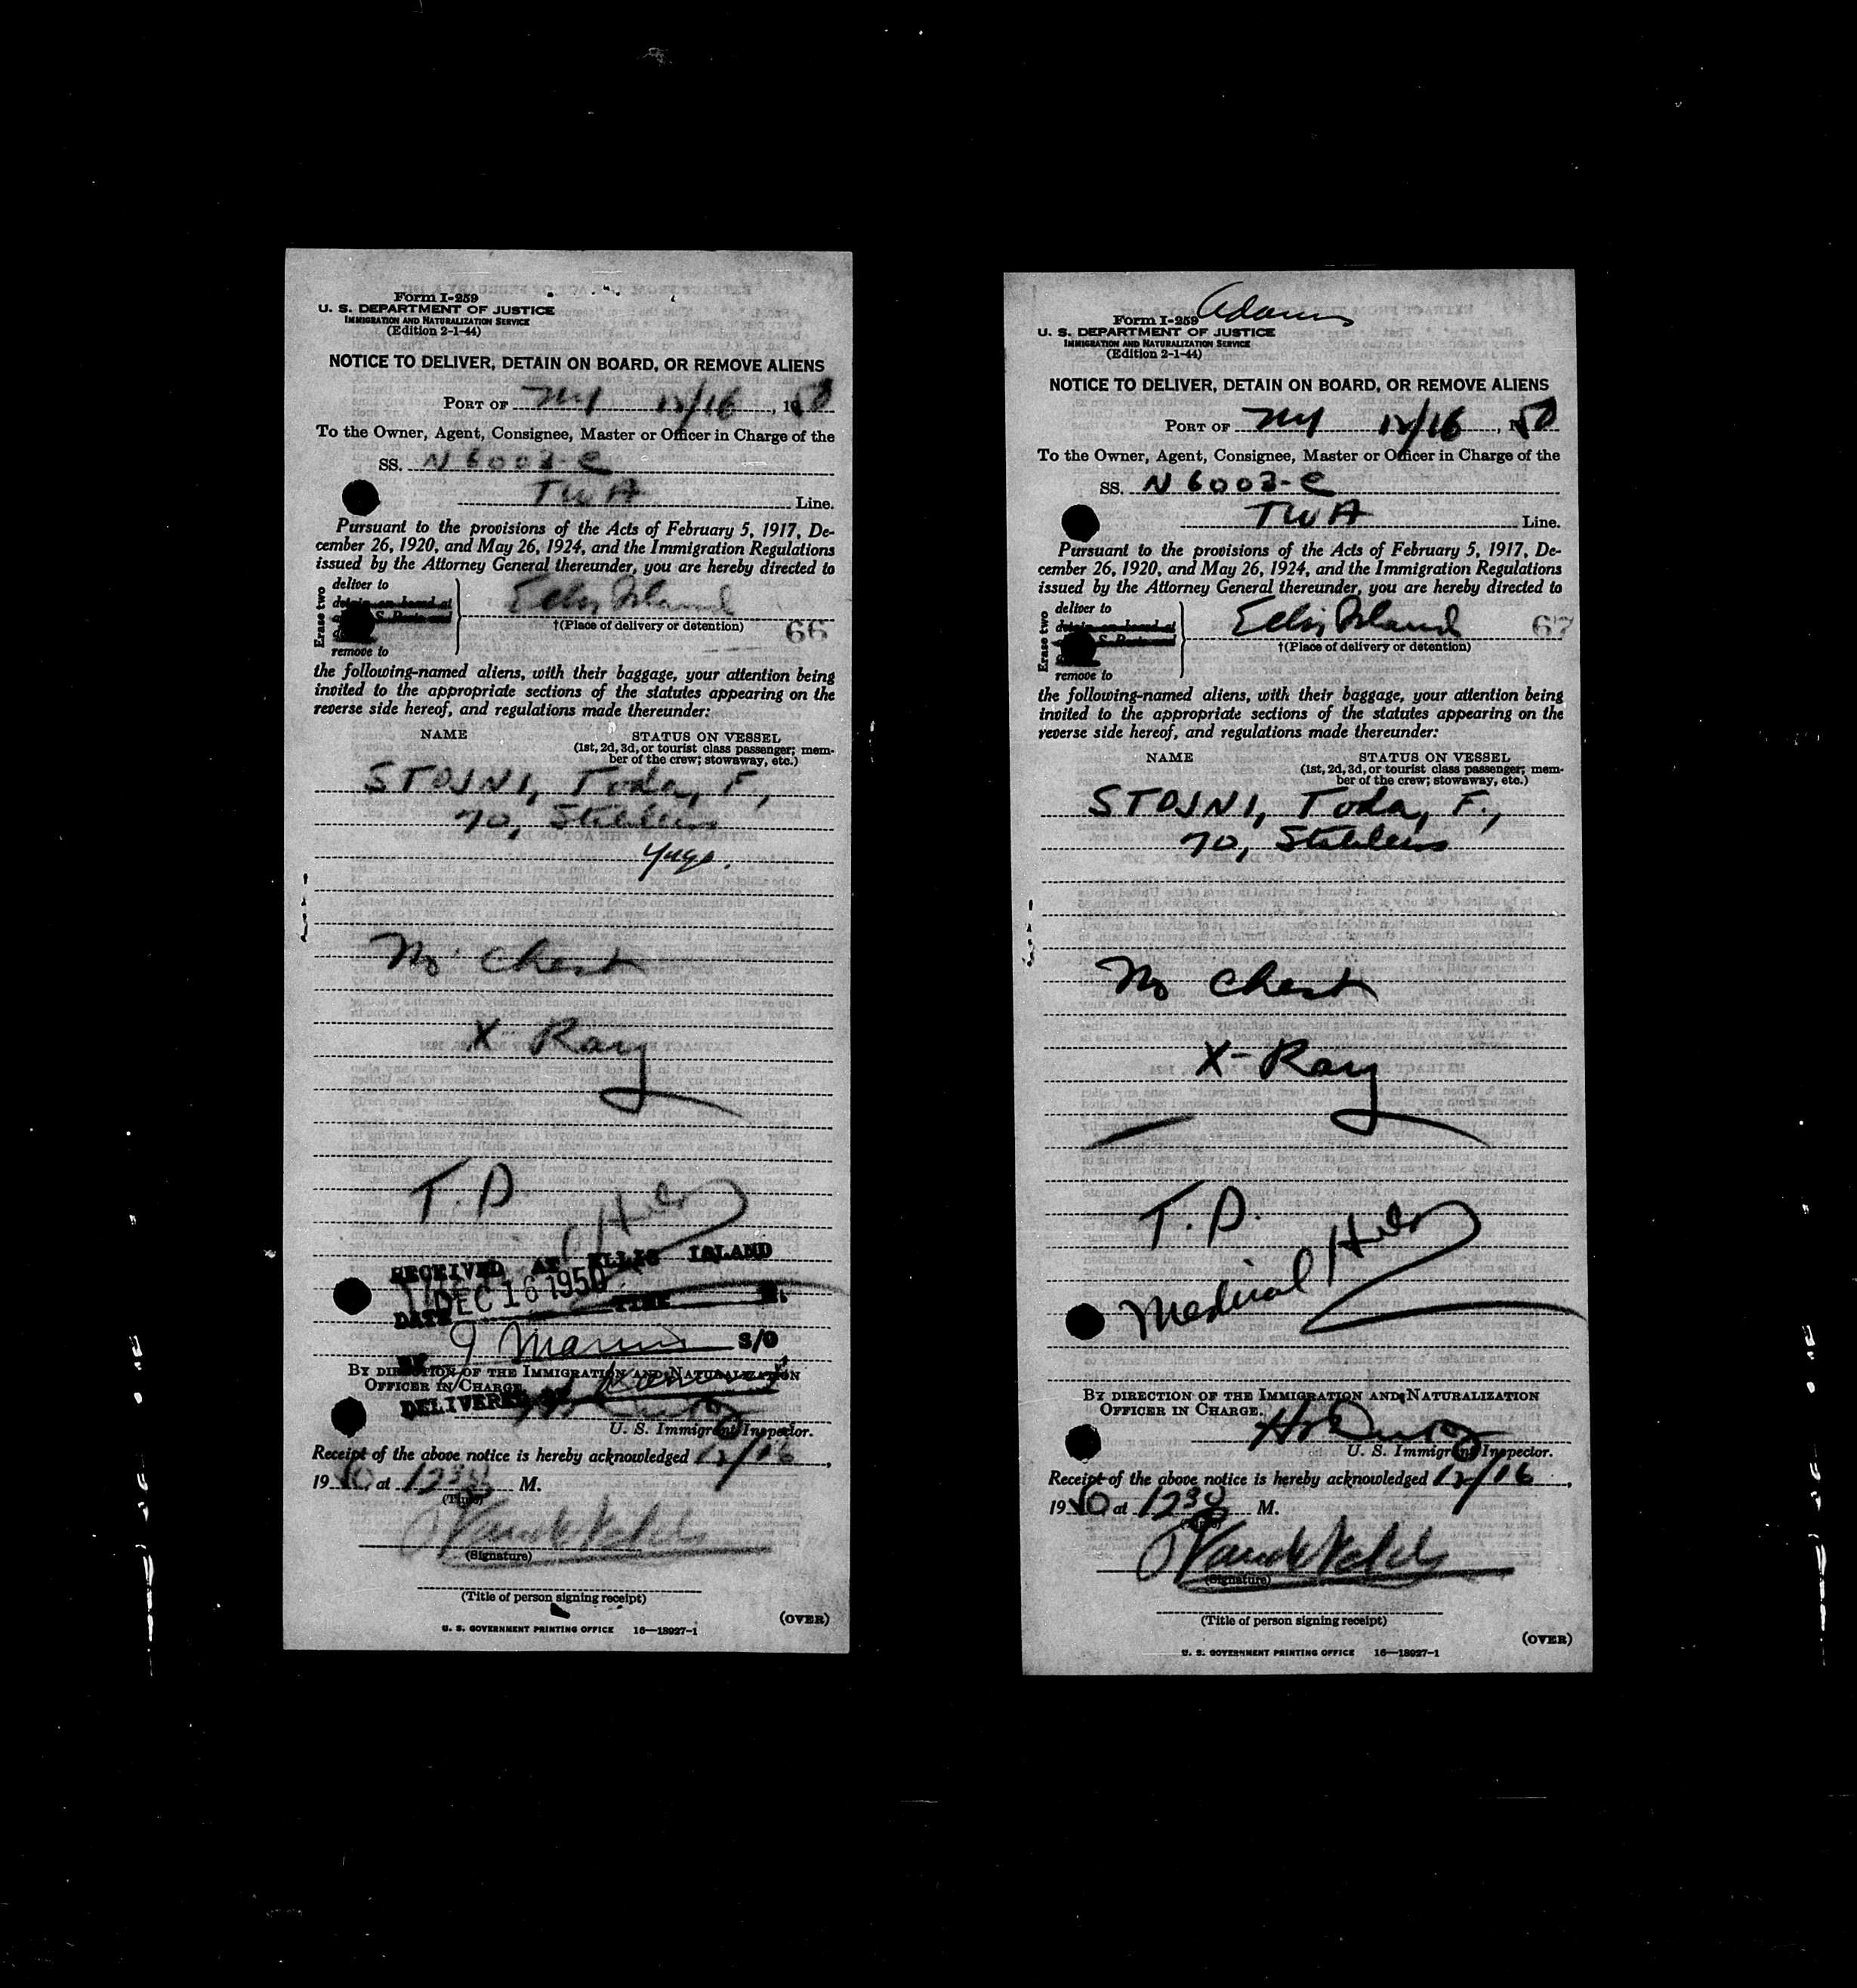 Form I-259
U. S. DEPARTMENT OF JUSTICE
IMMIGRATION AND NATURALIZATION SERVICE
(Edition 2-1-44)
NOTICE TO DELIVER, DETAIN ON BOARD, OR REMOVE ALIENS
PORT OF NY 12/16, 1950
To the Owner, Agent, Consignee, Master or Officer in Charge of the
SS. N 6003-C
TWA Line.
Pursuant to the provisions of the Acts of February 5, 1917, De-
cember 26, 1920, and May 26, 1924, and the Immigration Regulations
issued by the Attorney General thereunder, you are hereby directed to
Erase two
deliver to
detain on board at
remove to
Ellis Island
†(Place of delivery or detention)
66
the following-named aliens, with their baggage, your attention being
invited to the appropriate sections of the statutes appearing on the
reverse side hereof, and regulations made thereunder:
NAME STATUS ON VESSEL
(1st, 2d, 3d, or tourist class passenger; mem-
ber of the crew; stowaway, etc.)
STOJNI, Toda, F,
70, Stateless
Yugo.
No Chest
X-Ray
T.D.
RECEIVED AT ELLIS ISLAND
DEC 16 1950
DATE TIME M.
BY S/O
BY DIRECTION OF THE IMMIGRATION AND NATURALIZATION
OFFICER IN CHARGE.
DELIVERED BY
U. S. Immigrant Inspector.
Receipt of the above notice is hereby acknowledged 12/16,
1950 at 1230 M.
(Time)
(Signature)
(Title of person signing receipt)
(OVER)
U. S. GOVERNMENT PRINTING OFFICE 16—18927-1
Adams
Form I-259
U. S. DEPARTMENT OF JUSTICE
IMMIGRATION AND NATURALIZATION SERVICE
(Edition 2-1-44)
NOTICE TO DELIVER, DETAIN ON BOARD, OR REMOVE ALIENS
PORT OF NY 12/16, 1950
To the Owner, Agent, Consignee, Master or Officer in Charge of the
SS. N 6003-C
TWA Line.
Pursuant to the provisions of the Acts of February 5, 1917, De-
cember 26, 1920, and May 26, 1924, and the Immigration Regulations
issued by the Attorney General thereunder, you are hereby directed to
Erase two
deliver to
detain on board at
remove to
Ellis Island
†(Place of delivery or detention)
67
the following-named aliens, with their baggage, your attention being
invited to the appropriate sections of the statutes appearing on the
reverse side hereof, and regulations made thereunder:
NAME STATUS ON VESSEL
(1st, 2d, 3d, or tourist class passenger; mem-
ber of the crew; stowaway, etc.)
STOJNI, Toda, F.,
70, Stateless
No Chest
X-Ray
T.D.
Medical
BY DIRECTION OF THE IMMIGRATION AND NATURALIZATION
OFFICER IN CHARGE.
U. S. Immigrant Inspector.
Receipt of the above notice is hereby acknowledged 12/16,
1950 at 1230 M.
(Time)
(Signature)
(Title of person signing receipt)
(OVER)
U. S. GOVERNMENT PRINTING OFFICE 16—18927-1